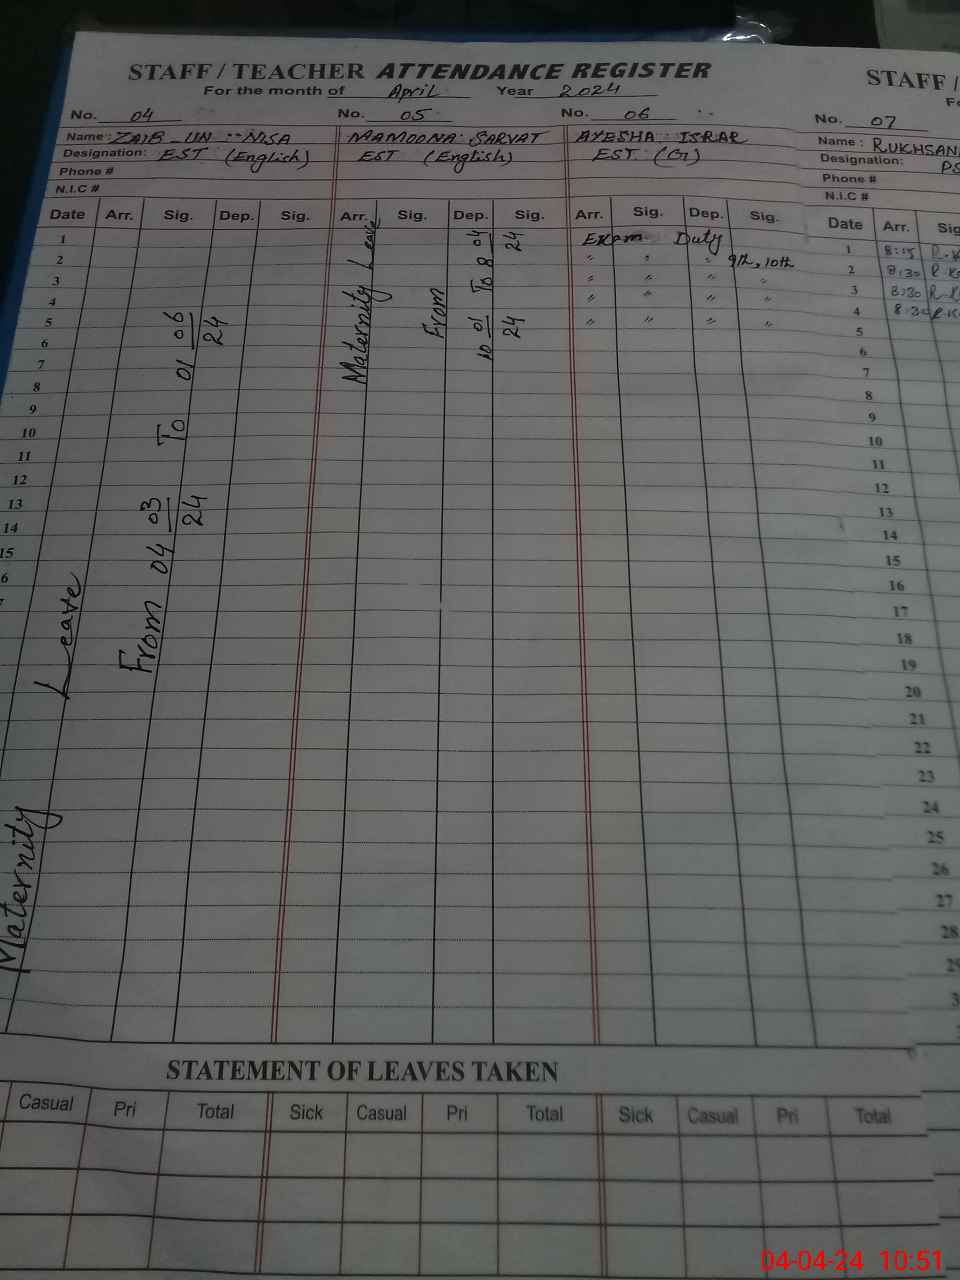 STAFF / TEACHER ATTENDANCE REGISTER
For the month of April Year 2024
No. 04 No. 05 No. 06
Name: ZAIB_UN_NISA MAMOONA SARVAT AYESHA ISRAR
Designation: EST (English) EST (English) EST (G)
Phone #
N.I.C #
Date Arr. Sig. Dep. Sig. Arr. Sig. Dep. Sig. Arr. Sig. Dep. Sig.
1 Exam Duty
2 " " " 9th, 10th
3 " " " "
4 " " "
5 " " " "
6
7
8
9
10
11
12
13
14
15
6
Maternity Leave
From 04 03/24 To 01 06/24
Maternity Leave
From
10 01/24 To 8 04/24
STAFF /
No. 07
Name: RUKHSAN
Designation: PS
Phone #
N.I.C #
Date Arr. Sig
1 8:15
2 8:30
3 8:30
4 8:30
5
6
7
8
9
10
11
12
13
14
15
16
17
18
19
20
21
22
23
24
25
26
27
28
STATEMENT OF LEAVES TAKEN
Casual Pri Total Sick Casual Pri Total Sick Casual Pri Total
04-04-24 10:51